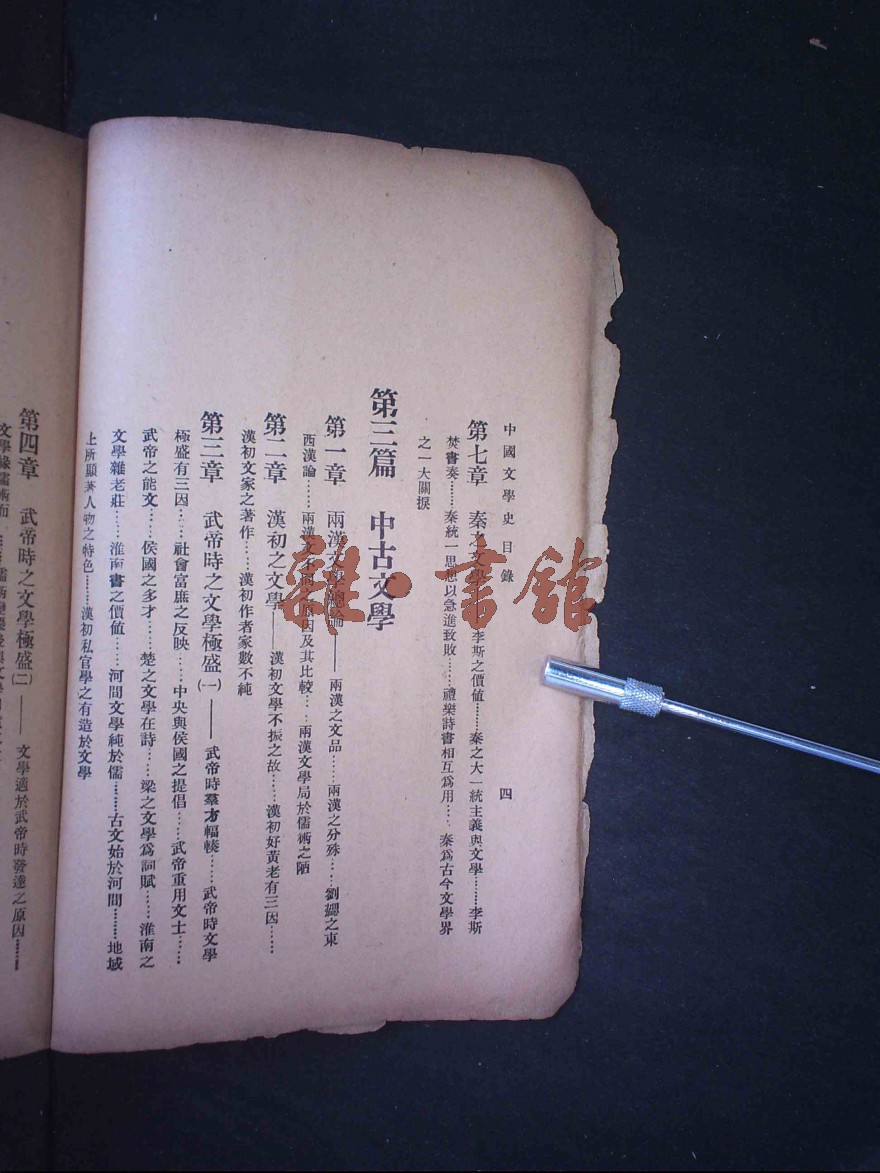 中國文學史 目錄
四
第七章 秦之文學 李斯之價値……秦之大一統主義與文學……李斯
焚書奏……秦統一思想以急進致敗……禮樂詩書相互爲用……秦爲古今文學界
之一大關捩
第三篇 中古文學
第一章 兩漢文學總論——兩漢之文品……兩漢之分殊……劉勰之東
西漢論……兩漢文不同之原因及其比較……兩漢文學局於儒術之陋
第二章 漢初之文學——漢初文學不振之故……漢初好黃老有三因……
漢初文家之著作……漢初作者家數不純
第三章 武帝時之文學極盛(一)——武帝時羣方輻輳……武帝時文學
極盛有三因……社會富庶之反映……中央與侯國之提倡……武帝重用文士……
武帝之能文……侯國之多才……楚之文學在詩……梁之文學爲詞賦……淮南之
文學雜老莊……淮南書之價値……河間文學純於儒……古文始於河間……地域
上所顯著人物之特色……漢初私官學之有造於文學
第四章 武帝時之文學極盛(二)——文學適於武帝時發達之原因……
雜·書館